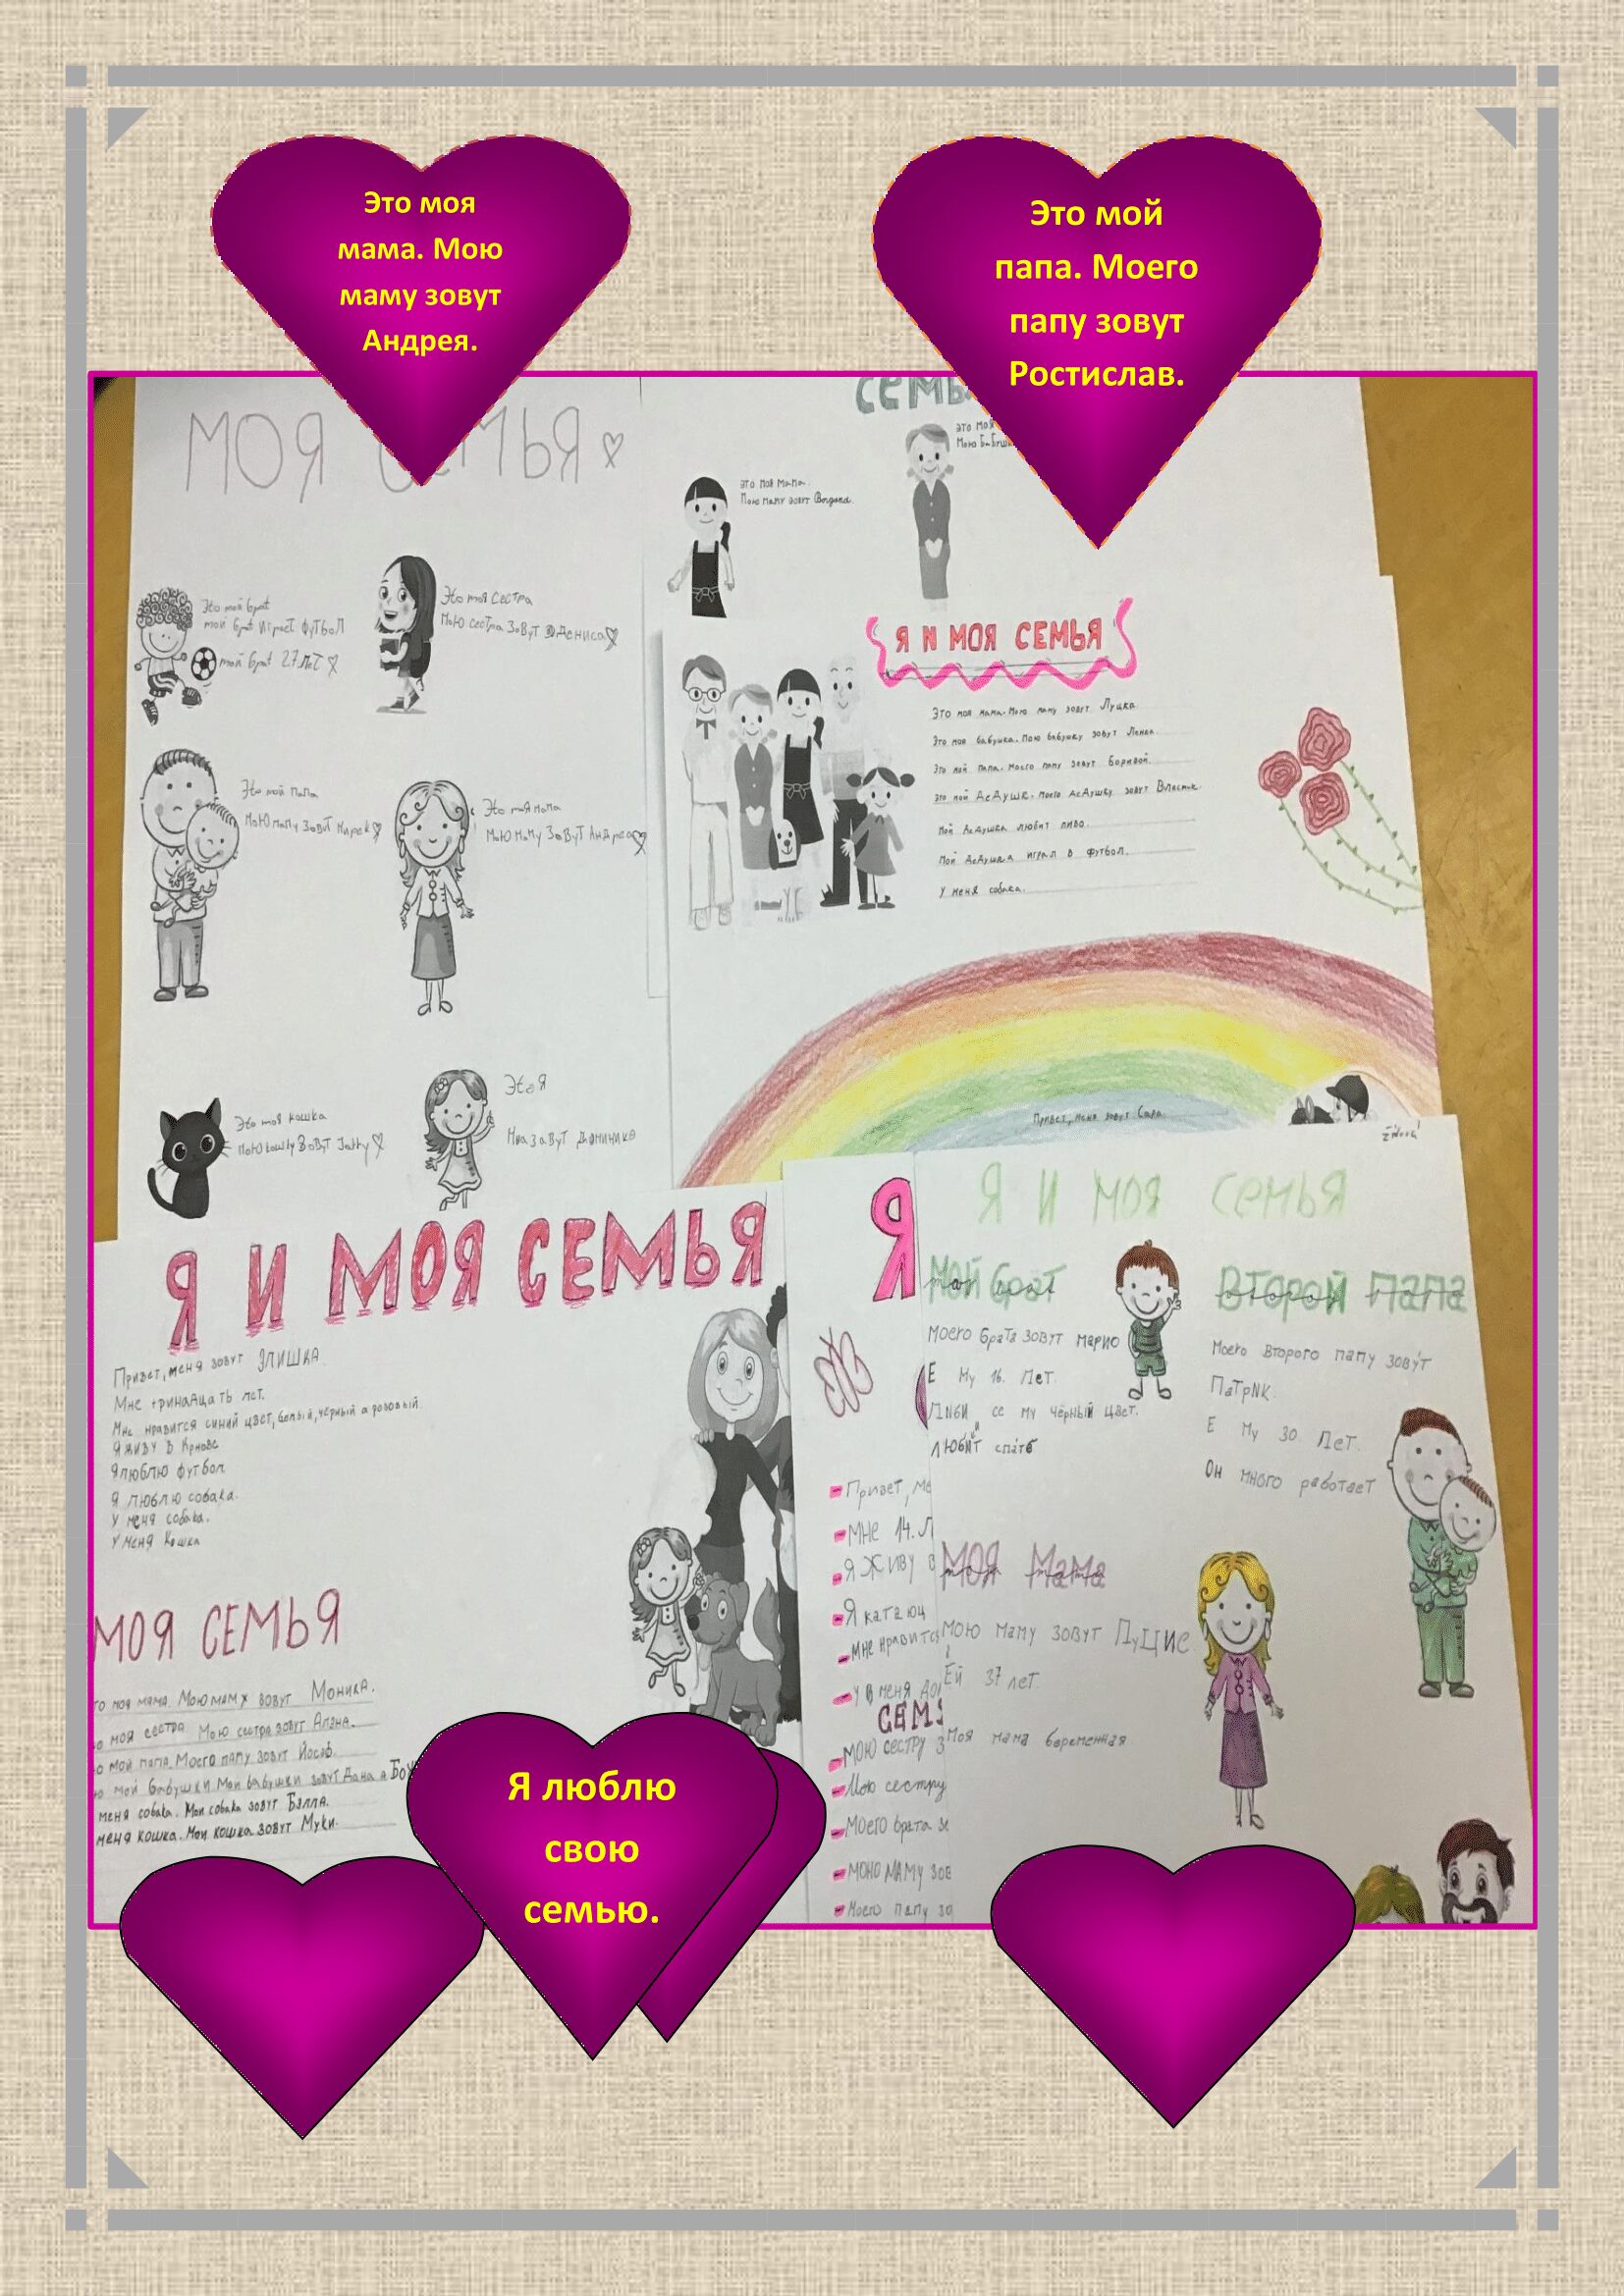 Это моя
мама. Мою
маму зовут
Андрея.
Это мой
папа. Моего
папу зовут
Ростислав.
МОЯ СЕМЬЯ
Это мой брат
мой брат играет футбол
мой брат 27 лет
Это моя сестра
мою сестра зовут Дениса
Это мой папа
мою папу зовут Мирек
Это моя мама
мою маму зовут Андреа
Это моя кошка
мою кошку зовут
Это я
зовут
СЕМЬ
это моя мама.
Мою маму зовут
это моя
Мою бабуш
Я И МОЯ СЕМЬЯ
Это моя мама. Мою маму зовут Луцка
Это моя бабушка. Мою бабушку зовут Ленка.
Это мой папа. Моего папу зовут Боривой.
Это мой дедушк. Моего дедушку зовут Властик.
Мой дедушка любит пиво.
Мой дедушка играл в футбол.
У меня собака.
Привет, меня зовут Сара.
Я И МОЯ СЕМЬЯ
Привет, меня зовут ЭЛИШКА
Мне тринадцать лет.
Мне нравится синий цвет, белый, чёрный а розовый.
Я живу в Крнове
Я люблю футбол
Я люблю собака.
У меня собака.
У меня кошка
МОЯ СЕМЬЯ
то моя мама. Мою маму зовут Моника.
о моя сестра Мою сестра зовут Алена.
о мой папа. Моего папу зовут Йосеф.
ю мой бабушки Мои бабушки зовут Дана а Бо
меня собака. Мои собака зовут Бэлла.
меня кошка. Мои кошка зовут Муки.
Я
Привет, ме
Мне 14. Л
Я живу в
Я катаюц
Мне нравитс
У в меня
СЕМЬ
Мою сестру з
Мою сестру
Моего брата зс
МОЮ МАМУ зов
Моего папу зо
Я И МОЯ СЕМЬЯ
Мой брат
Моего брата зовут марио
Е му 16. лет.
се му чёрный цвет.
любит спать
Второй папа
Моего второго папу зовут
Патрик.
Е му 30 лет.
Он много работает
Моя мама
Мою маму зовут Луцие
Ей 37 лет.
Моя мама беременная
Я люблю
свою
семью.